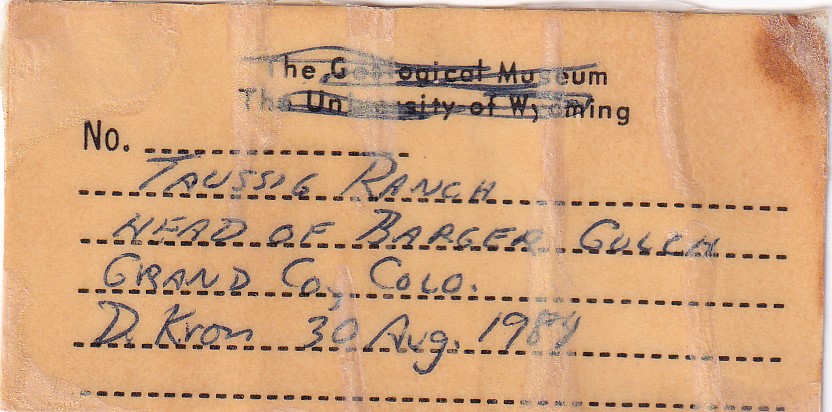 The Geological Museum
The University of Wyoming
No.
TAUSSIG RANCH
HEAD OF BARGER GULCH
GRAND CO., COLO.
D. Kron 30 Aug. 1984